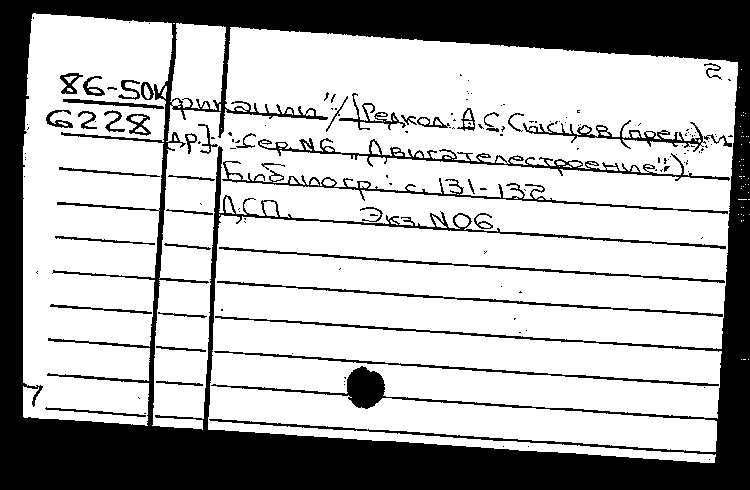 2.
86-50К фикации"/[Редкол. А.С. Сысцов (пред.) и
6228 др.]. : Сер. №6 „Двигателестроение").
Библиогр.: с. 131-132.
ДСП. Экз. №06.